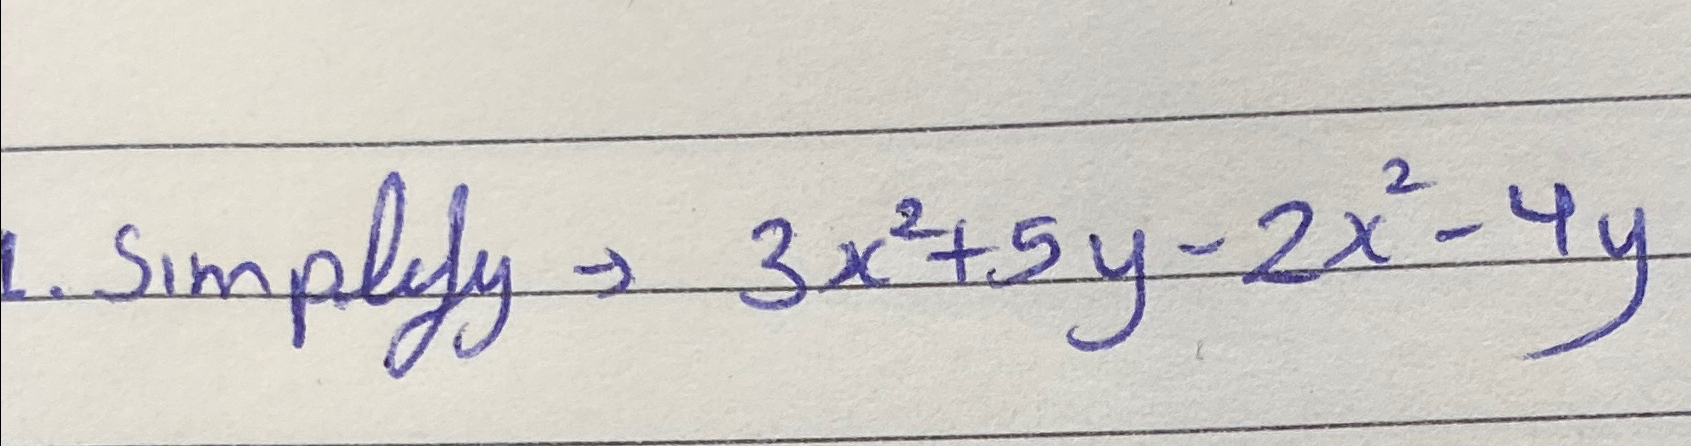 1. Simplify → 3x²+5y-2x²-4y